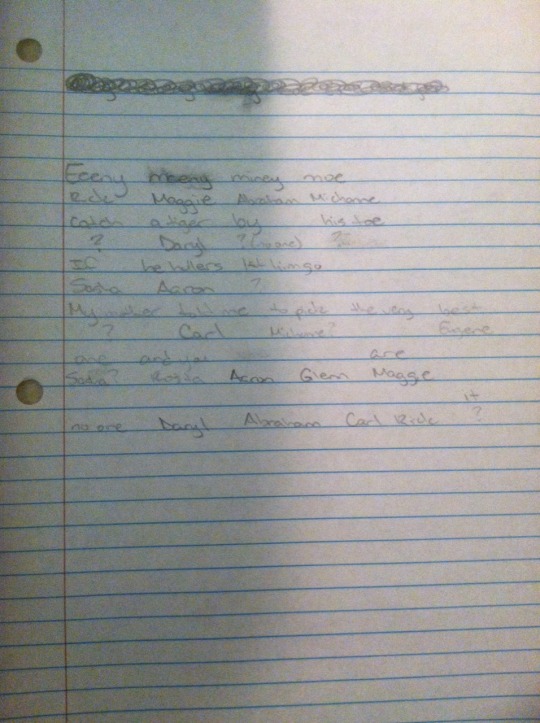 Eeeny meeny miney moe
Rick Maggie Abraham Michone
catch a tiger by his toe
? Daryl ? (no one) ?
If he hollers let him go
Sasha Aaron ?
My mother told me to pick the very best
? Carl Michone? Eugene
one and you are
Sasha? Rosita Aaron Glenn Maggie
it
no one Daryl Abraham Carl Rick ?